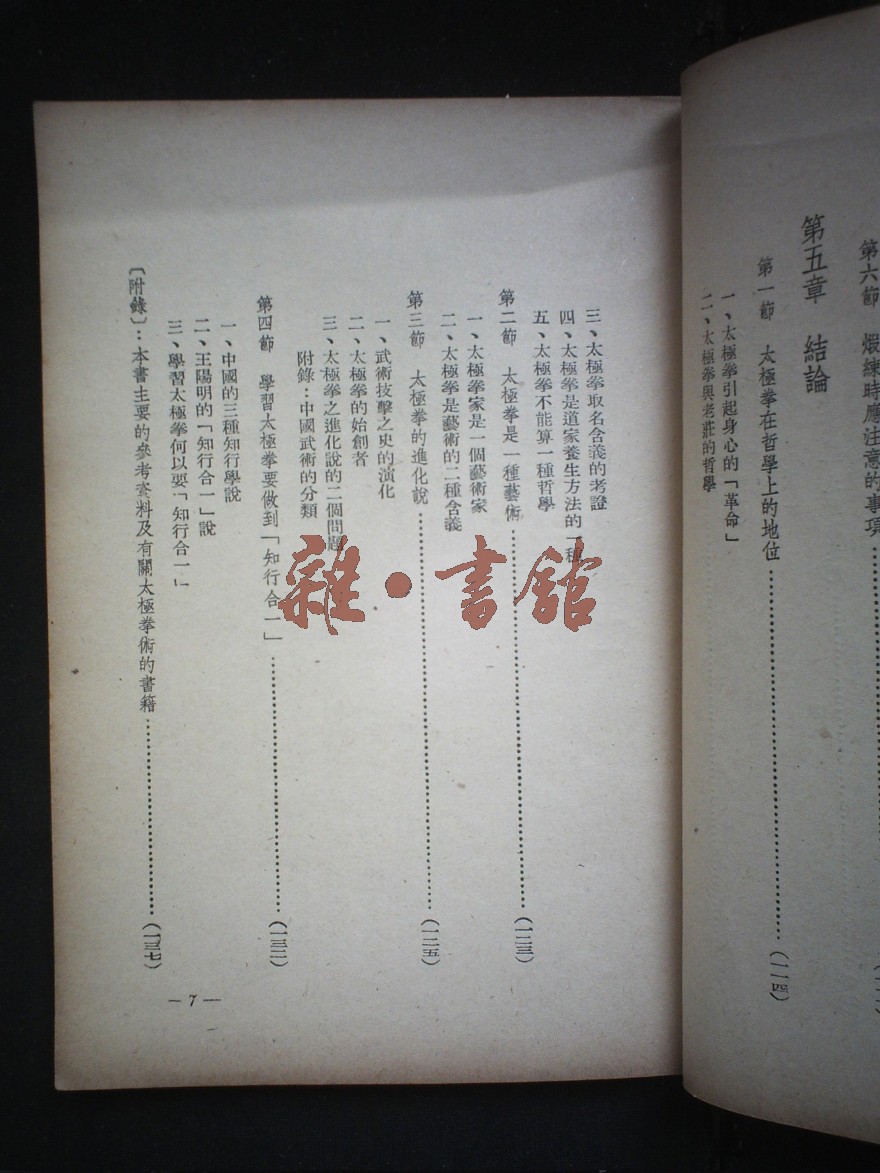 第六節 煅練時應注意的事項
第五章 結論
第一節 太極拳在哲學上的地位……(一一四)
一、太極拳引起身心的「革命」
二、太極拳與老莊的哲學
三、太極拳取名含義的考證
四、太極拳是道家養生方法的一種
五、太極拳不能算一種哲學
第二節 太極拳是一種藝術……(一二三)
一、太極拳家是一個藝術家
二、太極拳是藝術的二種含義
第三節 太極拳的進化說……(一二五)
一、武術技擊之史的演化
二、太極拳的始創者
三、太極拳之進化說的二個問題
附錄：中國武術的分類
第四節 學習太極拳要做到「知行合一」……(一三二)
一、中國的三種知行學說
二、王陽明的「知行合一」說
三、學習太極拳何以要「知行合一」
〔附錄〕：本書主要的參考資料及有關太極拳術的書籍……(一三七)
— 7 —
雜·書館